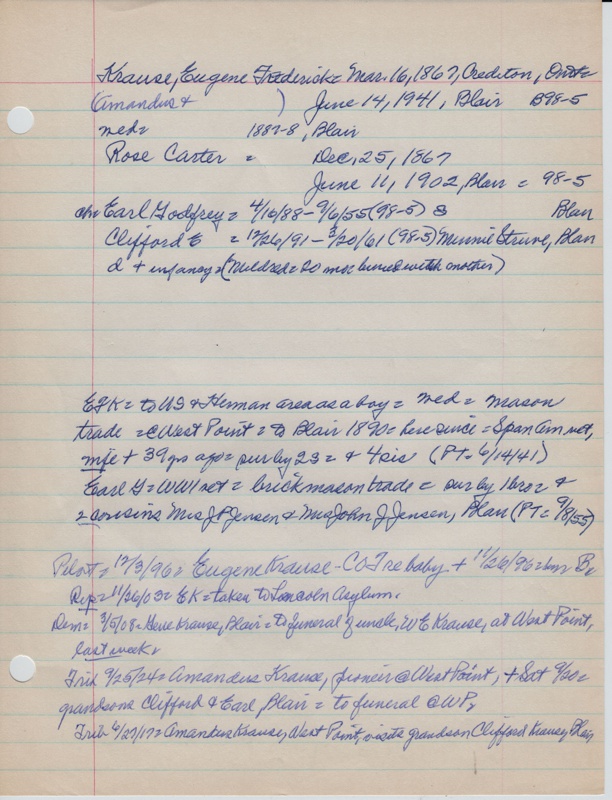 Krause, Eugene Frederick = Mar. 16, 1867, Crediton, Ont =
(Amandus + ) June 14, 1941, Blair B98-5
wed = 1887-8, Blair
Rose Carter = Dec, 25, 1867
June 11, 1902, Blair = 98-5
chn Earl Godfrey = 4/16/88 - 9/6/55 (98-5) S Blair
Clifford E = 12/26/91 - 3/20/61 (98-5) Minnie Struve, Blair
d + infancy = (Mildred = 20 mos buried with mother)
EFK = to US + Herman area as a boy = wed = mason
trade = @ West Point = to Blair 1890 = here since = Span Am vet,
wife + 39 yrs ago = sur by 2S = + 4 sis (PT = 6/14/41)
Earl G = WW1 vet = brick mason trade = sur by 1 bro = +
2 cousins Mrs J P Jensen + Mrs John J Jensen, Blair (PT = 9/8/55)
Pilot = 12/3/96 = Eugene Krause - CO Tre baby + 11/26/96 = bur Bl
Rep = 11/26/03 = EK = taken to Lincoln Asylum.
Dem = 3/5/08 = Gene Krause, Blair = to funeral of uncle, W E Krause, at West Point,
last week.
Trib 9/25/24 = Amandus Krause, pioneer @ West Point, + Sat 9/20 =
grandsons Clifford & Earl, Blair = to funeral @ WP.
Trib 6/27/17 = Amandus Krause, West Point, visits grandson Clifford Krause, Blair